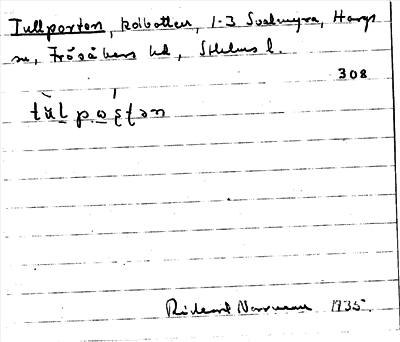 Tullporten, kolbotten, 1-3 Svalmyra, Hargs
sn, Frösåkers hd, Sthlms l.
308
tùl pɷ́ʂʈən
Rickard Norrman 1935.